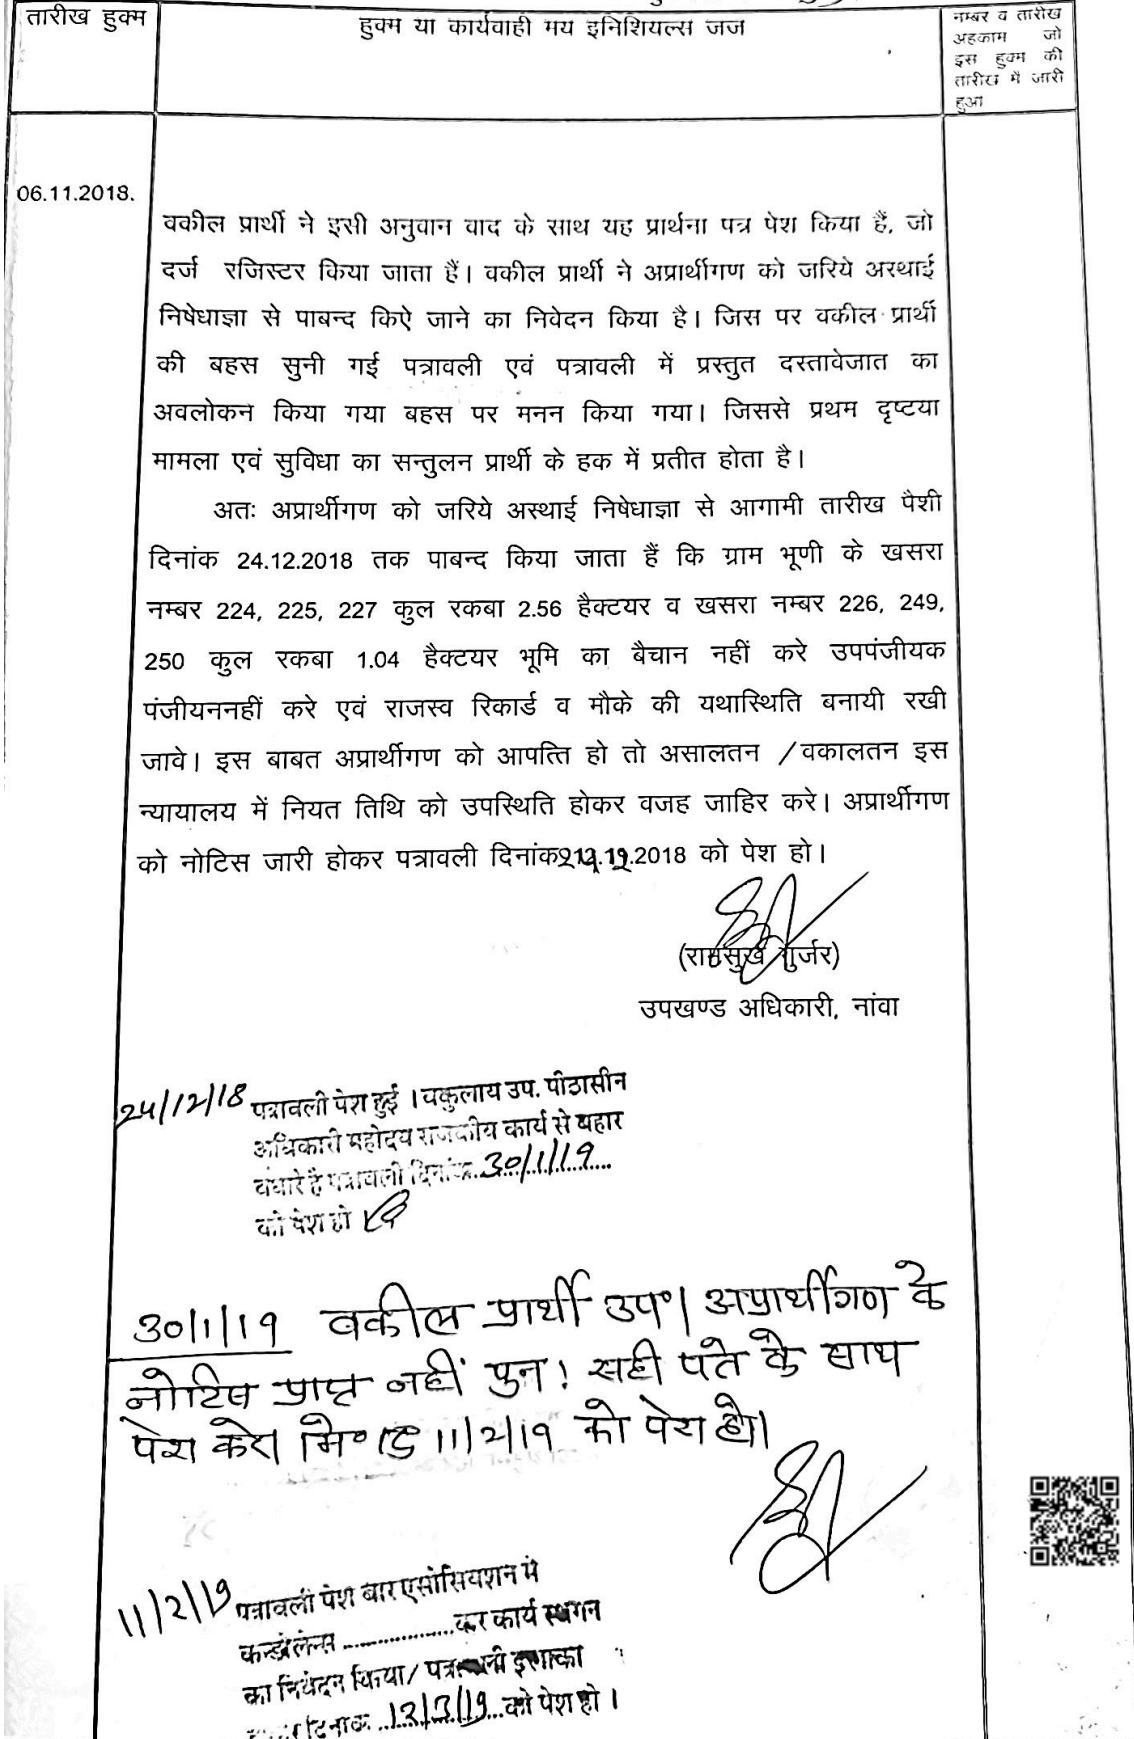 तारीख हुक्म
हुक्म या कार्यवाही मय इनिशियल्स जज
नम्बर व तारीख
अहकाम जो
इस हुक्म की
तारीख में जारी
हुआ
06.11.2018.
वकील प्रार्थी ने इसी अनुवान वाद के साथ यह प्रार्थना पत्र पेश किया हैं, जो
दर्ज रजिस्टर किया जाता हैं। वकील प्रार्थी ने अप्रार्थीगण को जरिये अस्थाई
निषेधाज्ञा से पाबन्द किऐ जाने का निवेदन किया है। जिस पर वकील प्रार्थी
की बहस सुनी गई पत्रावली एवं पत्रावली में प्रस्तुत दस्तावेजात का
अवलोकन किया गया बहस पर मनन किया गया। जिससे प्रथम दृष्टया
मामला एवं सुविधा का सन्तुलन प्रार्थी के हक में प्रतीत होता है।
अतः अप्रार्थीगण को जरिये अस्थाई निषेधाज्ञा से आगामी तारीख पैशी
दिनांक 24.12.2018 तक पाबन्द किया जाता हैं कि ग्राम भूणी के खसरा
नम्बर 224, 225, 227 कुल रकबा 2.56 हैक्टयर व खसरा नम्बर 226, 249,
250 कुल रकबा 1.04 हैक्टयर भूमि का बैचान नहीं करे उपपंजीयक
पंजीयननहीं करे एवं राजस्व रिकार्ड व मौके की यथास्थिति बनायी रखी
जावे। इस बाबत अप्रार्थीगण को आपत्ति हो तो असालतन /वकालतन इस
न्यायालय में नियत तिथि को उपस्थिति होकर वजह जाहिर करे। अप्रार्थीगण
को नोटिस जारी होकर पत्रावली दिनांक .2018 को पेश हो।
(रामसुख गुर्जर)
उपखण्ड अधिकारी, नांवा
24/12/18 पत्रावली पेश हुई । वकुलाय उप. पीठासीन
अधिकारी महोदय राजकीय कार्य से बहार
पधारे है पत्रावली दिनांक 30/1/19
को पेश हो
30/1/19 वकील प्रार्थी उप० । अप्रार्थीगण के
नोटिस प्राप्त नहीं पुनः सही पते के साथ
पेश करे। 11/2/19 को पेश हो।
11/2/19 पत्रावली पेश बार एसोसियशन मे
कन्डोलेन्स ........ कर कार्य स्थगन
का निवेदन किया/ पत्रावली
दिनांक 13/3/19 को पेश हो ।